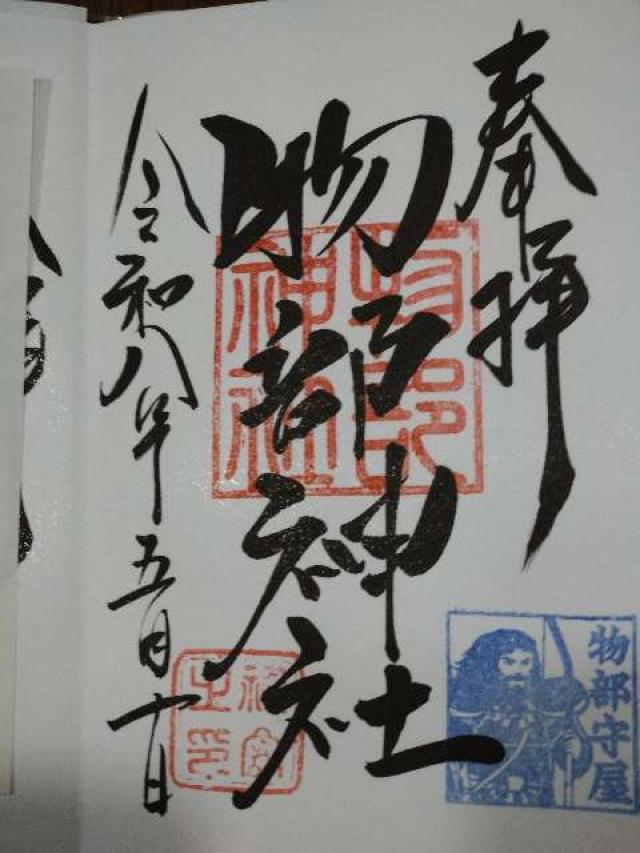 奉拝
物部神社
令和八年五月十日
物部神社
物部守屋